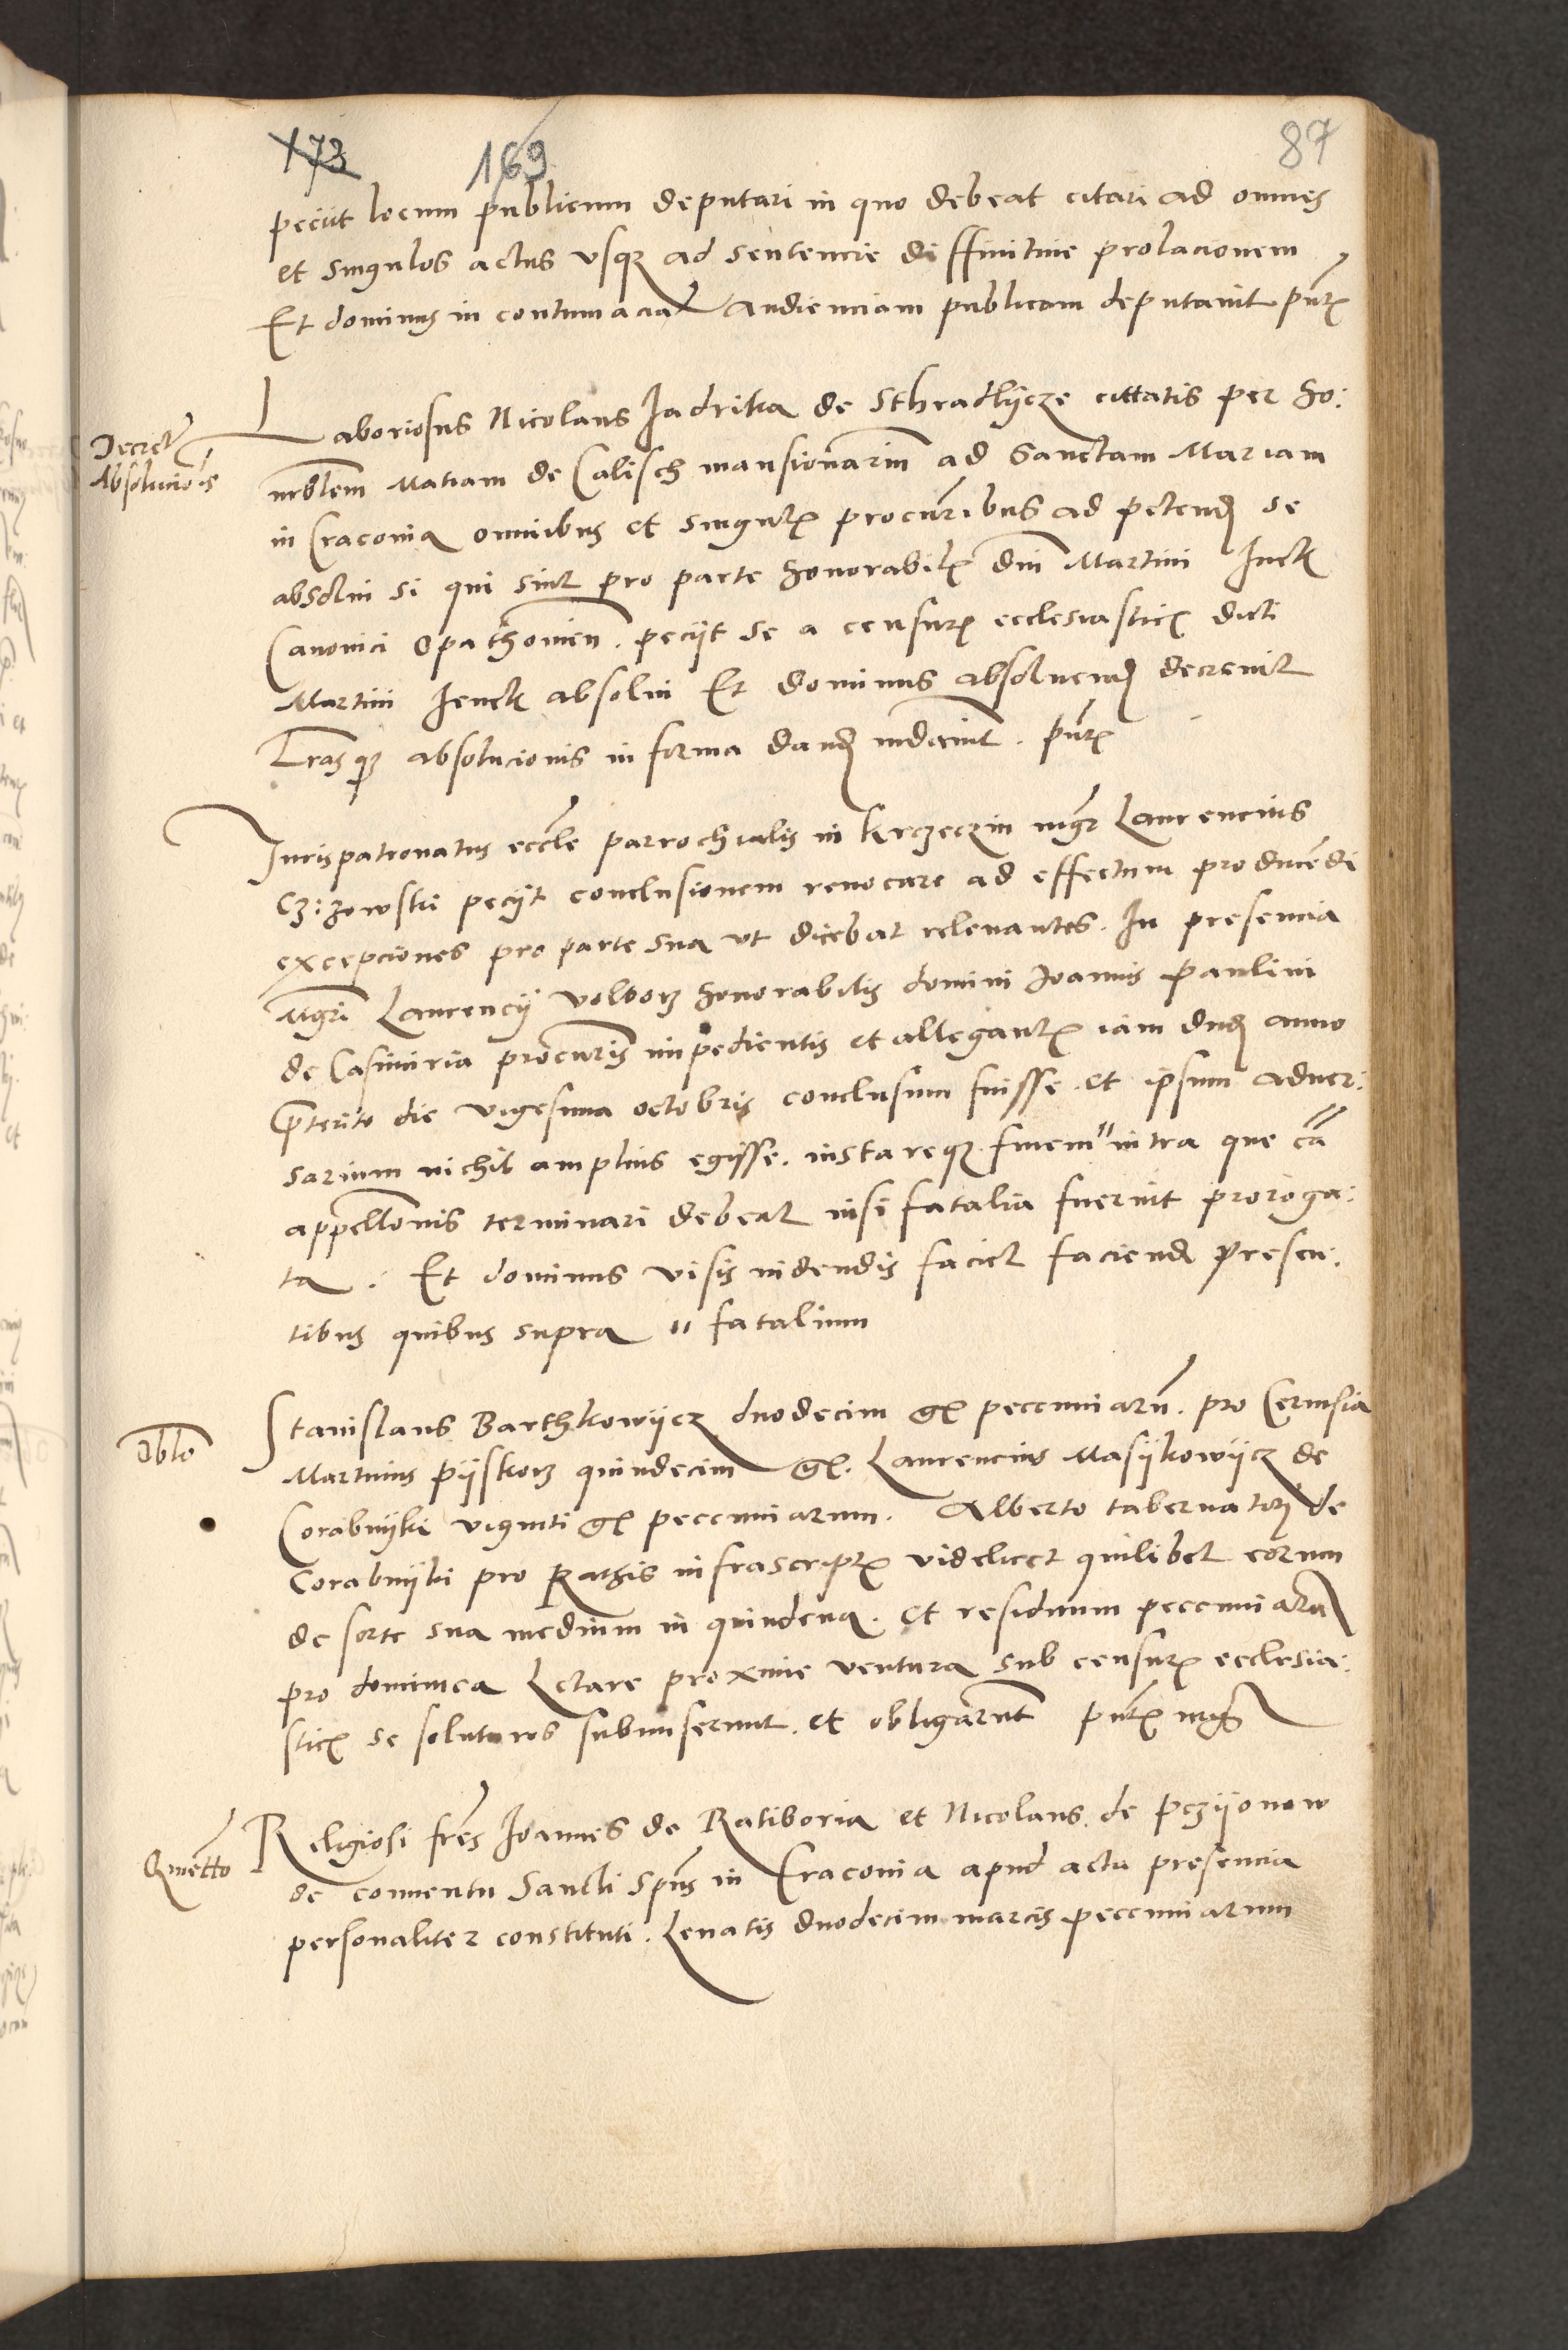 173 169 87
peciit locum publicum deputari in quo debeat citari ad omnes
et singulos actus vsqz ad sentencie diffinitiue prolacionem
Et dominus in contumacia Audienciam publicam deputauit pñtz
Decret
Absolucõis
Laboriosus Nicolaus Jadrika de Sthradlijcze cittatis per ho:
norablem Matiam de Calisch mansionariũ ad Sanctam Mariam
in Cracouia omnibus et singul procurribus ad petend se
absolui si qui sint pro parte honorabil dni Martini Jenck
Canonici Opathouien. peciit se a censur ecclesiastic dicti
Martini Jenck absolui Et dominus absoluend decreuit
Lrasqz absolucionis in forma dand mdauit. pñtz
Jurispatronatus eccle parrochialis in Krzeczin mgr Laurencius
Cz:zowski peciit conclusionem reuocare ad effectum producendi
excepciones pro parte sua vt dicebat releuantes. In presencia
Mgri Laurencij Volborz honorabilis domini Joannis Paulini
de Casimiria procuris impedientis et allegant iam dud anno
preterito die vigesima octobris conclusum fuisse. et ipsum aduer:
sarium nichil amplius egisse. instareqz finem" intra que cã
appellonis terminari debeat nisi fatalia fuerint proroga:
ta. Et dominus visis videndis faciet faciend presen:
tibus quibus supra " fatalium
Oblo
Stanislaus Barthkowijcz duodecim gr pecuniarũ. pro Ceruisia
Martinus Pijskorz quindecim gr. Laurencius Masijkowijcz de
Corabnijki viginti gr pecuniarum. Alberto tabernatori de
Corabnijki pro Rathis infrascript videlicet quilibet eorum
de sorte sua medium in quindena. et residuum pecuniarũ
pro dominica Letare proxime ventura sub censur ecclesia:
stic se soluturos submiserunt. et obligarunt pñtz mgr
Quietto
Religiosi fres Joannes de Ratiboria et Nicolaus de Pczijonow
de conuentu Sancti Spũs in Cracouia apud acta presencia
personaliter constituti. Leuatis duodecim marcis pecuniarum